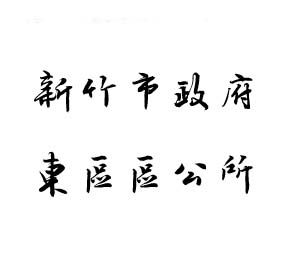 新竹市政府
東區區公所